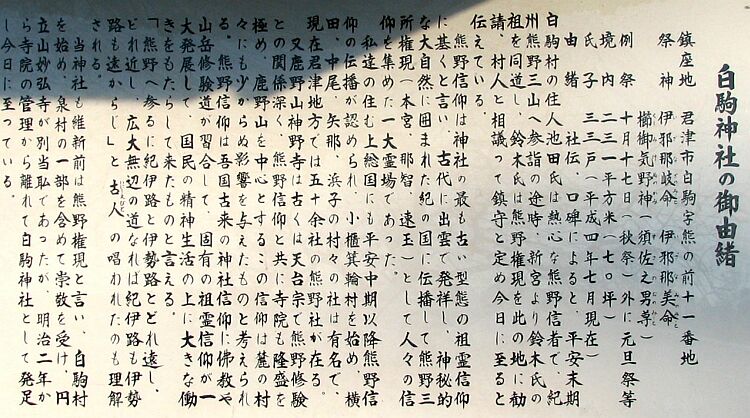 白駒神社の御由緒
鎮座地　君津市白駒字熊の前十一番地
祭神　伊邪那岐命　伊邪那美命
櫛御気野神（須佐之男尊）
例祭　十月十七日（秋祭）外に元旦祭等
境内　二三一平方米（七〇坪）
氏子　三三戸（平成四年七月現在）
由緒　社伝、口碑によると、平安末期
白駒村の住人池田氏は熱心な熊野信者で、紀
州熊野三山へ参詣の途時、新宮より鈴木氏の
祖を同道し、鈴木氏は熊野権現を此の地に勧
請、村人と相議って鎮守と定め今日に至ると
伝えている。
熊野信仰は神社の最も古い型態の祖霊信仰
に基くと言い、古代に出雲で発祥し、神秘的
な大自然に囲まれた紀の国に伝播して熊野三
所権現（本宮、那智、速玉）として人々の信
仰を集めた一大霊場であった。
私達の住む上総国にも平安中期以降熊野信
仰の伝播が認められ、小櫃箕輪村を始め、横
田、中尾、矢那、浜子の村々の社は有名で、
現在君津地方では五十余社の熊野社が在る。
又鹿野山神野寺は古くは天台宗で熊野修験
との関係深く、熊野信仰と共に寺院も隆盛を
極め、鹿野山を中心とするこの信仰は麓の村
々にも少からぬ影響を与えたものと考えられ
る。熊野信仰は吾国古来の神社信仰に佛教や
山岳修験道が習合して、固有の祖霊信仰が一
大発展して、国民の精神生活の上に大きな働
きをもたらして来たものと言える。
「熊野へ参るに紀伊路と伊勢路とどれ近し、
どれ近し、広大無辺の道なれば紀伊路も伊勢
路も遠からじ」と古人の唱われたのも理解
される。
当神社も維新前は熊野権現と言い、白駒村
を始め、泉村の一部を含めて崇敬を受け、円
立山妙弘寺が別当職であったが、明治二年か
ら寺院の管理から離れて白駒神社として発足
し今日に至っている。